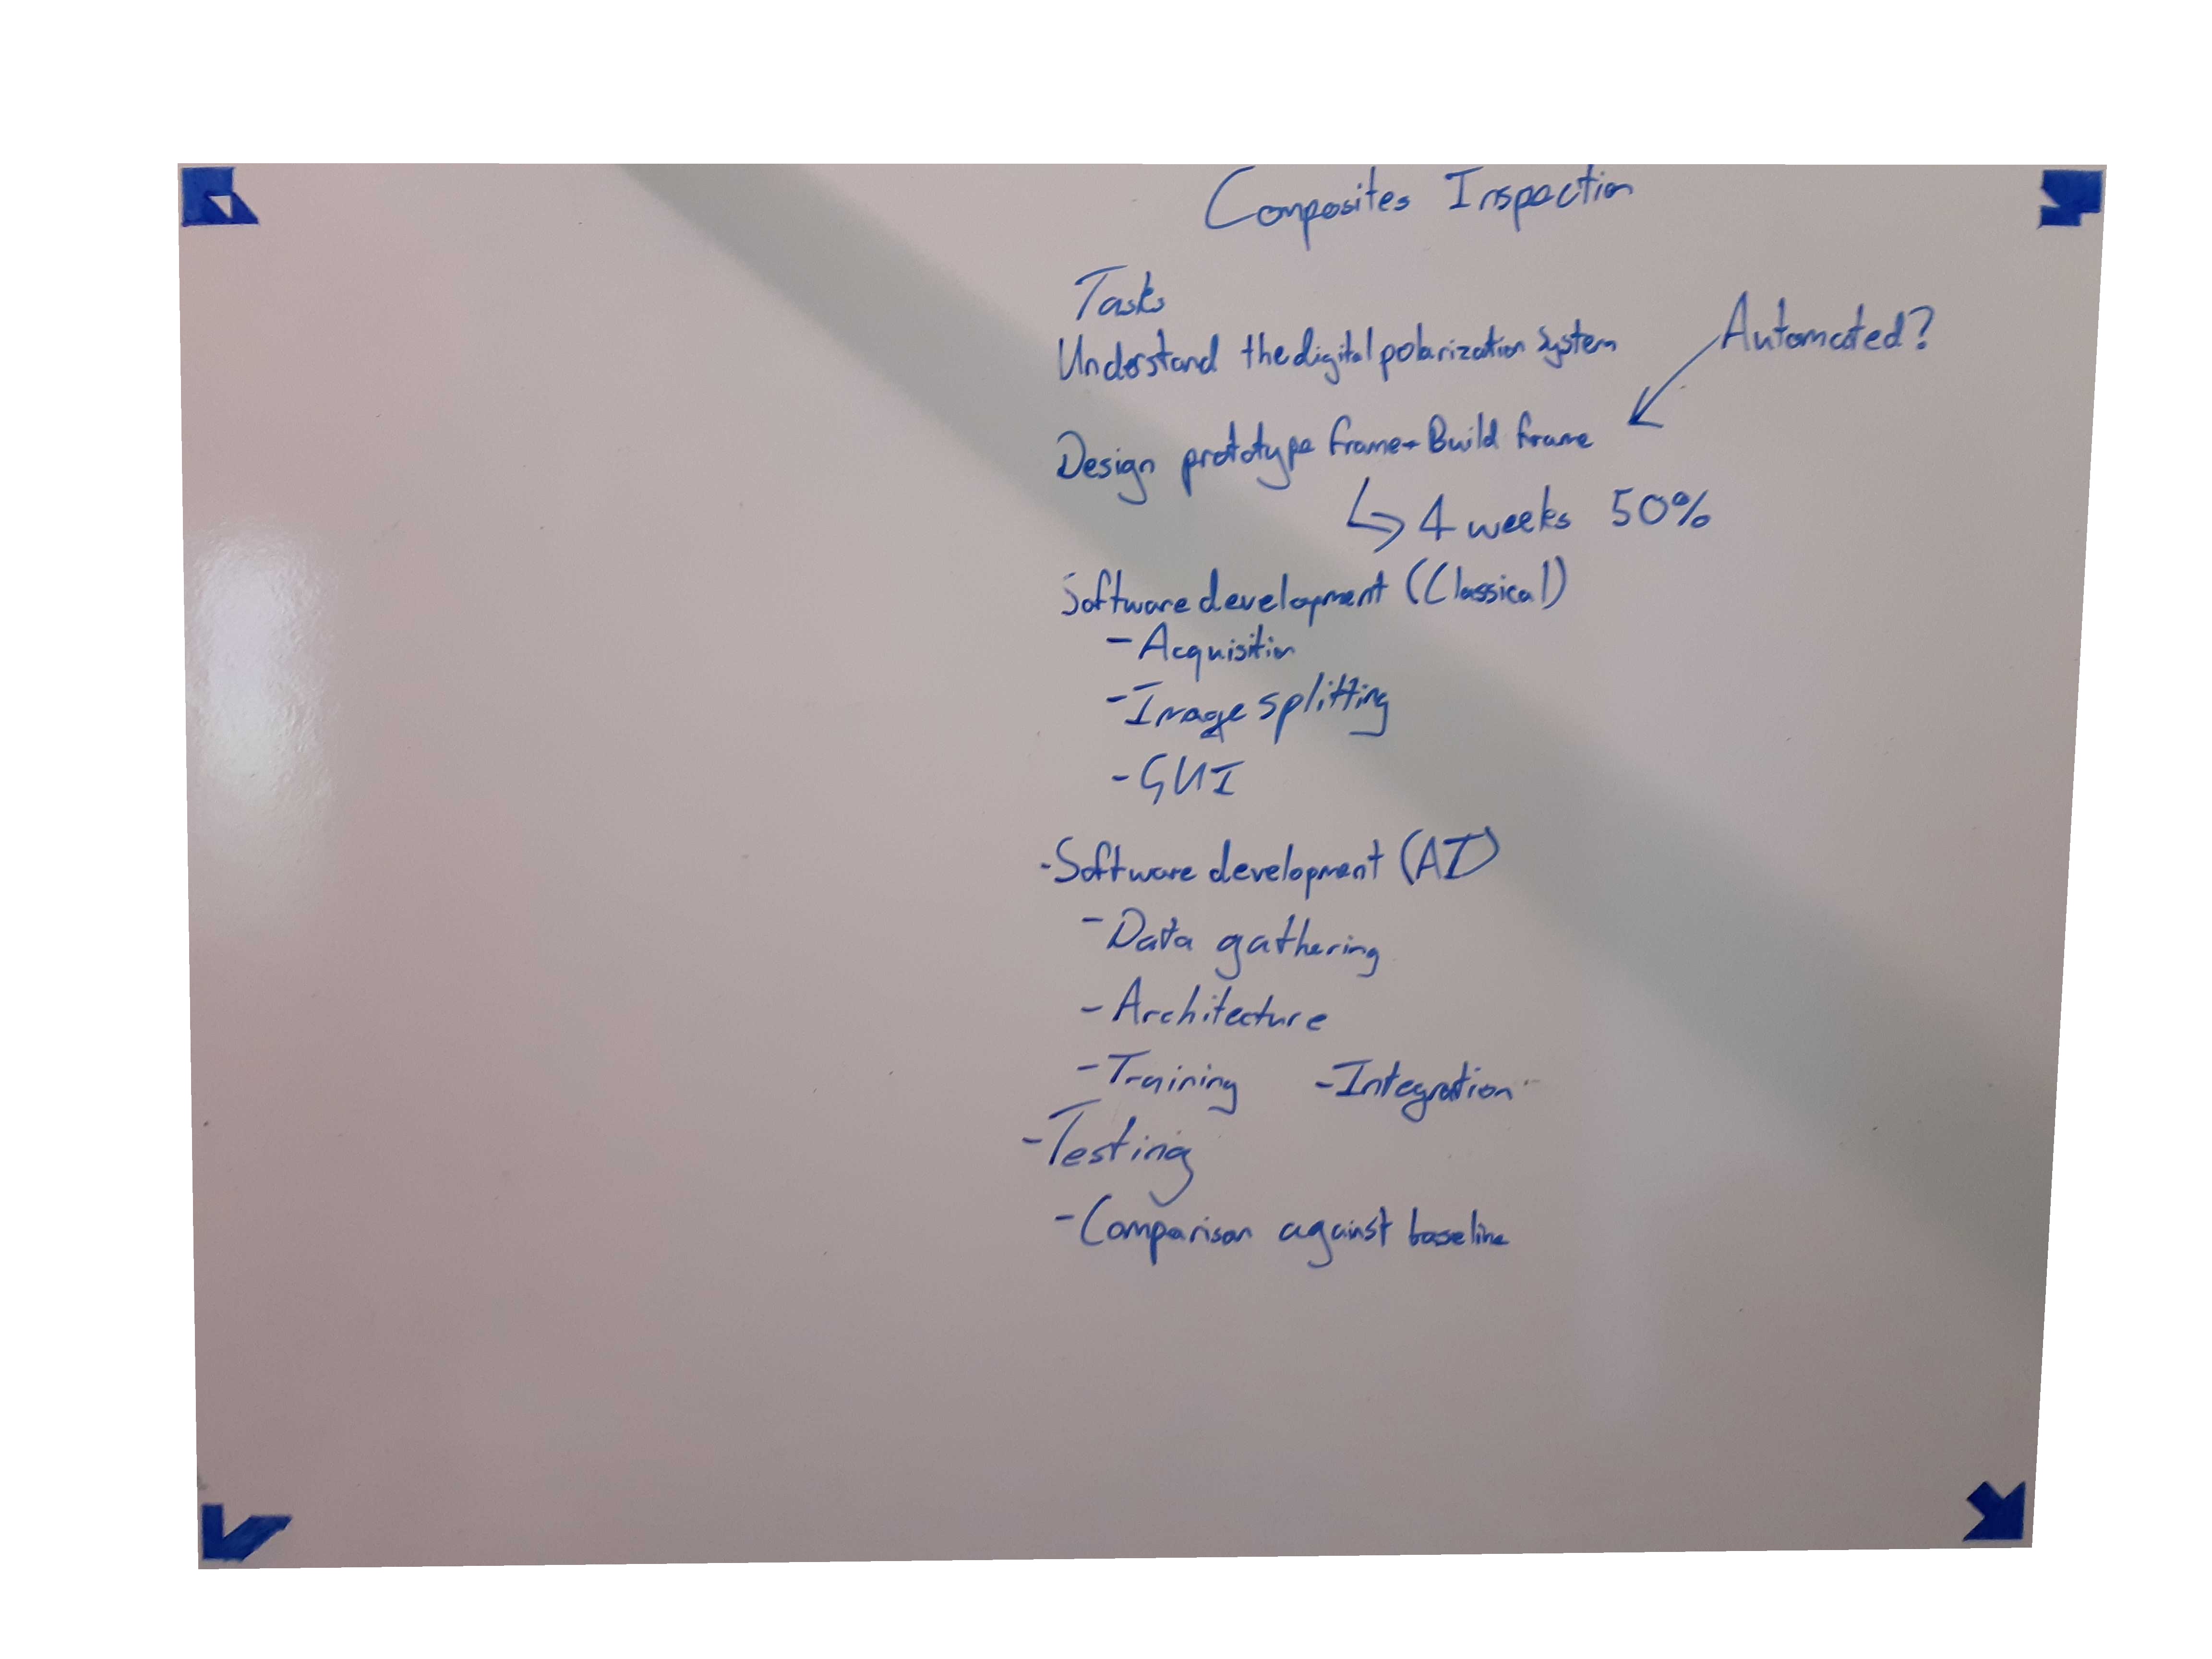 Composites Inspection
Tasks
Understand the digital polarization system
Automated?
Design prototype frame + Build frame
4 weeks 50%
Software development (Classical)
- Acquisition
- Image splitting
- GUI
- Software development (AI)
- Data gathering
- Architecture
- Training - Integration
- Testing
- Comparison against baseline